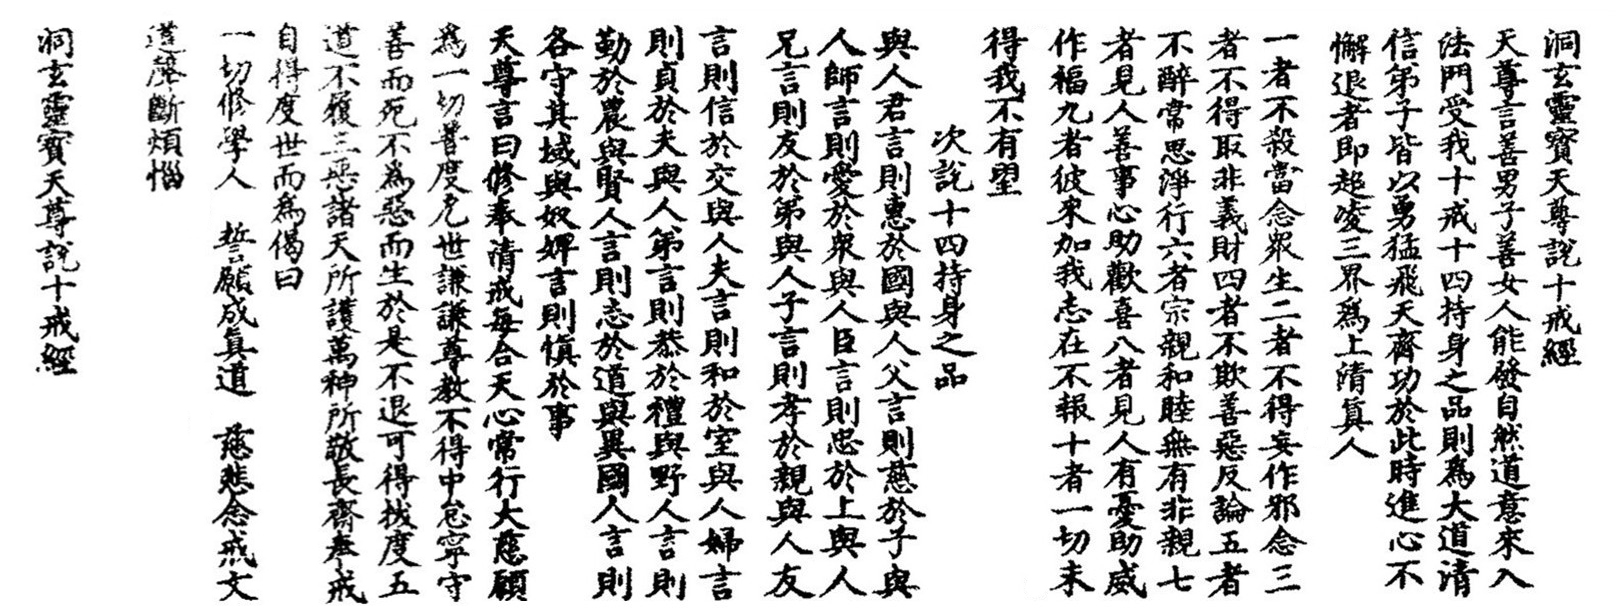 洞玄靈寶天尊說十戒經
天尊言善男子善女人能發自然道意來入
法門受我十戒十四持身之品則為大道清
信弟子皆以勇猛飛天齊功於此時進心不
懈退者即超凌三界為上清真人
一者不殺當念眾生二者不得妄作邪念三
者不得取非義財四者不欺善惡反論五者
不醉常思淨行六者宗親和睦無有非親七
者見人善事心助歡喜八者見人有憂助威
作福九者彼來加我志在不報十者一切未
得我不有望
次說十四持身之品
與人君言則惠於國與人父言則慈於子與
人師言則愛於眾與人臣言則忠於上與人
兄言則友於弟與人子言則孝於親與人友
言則信於交與人夫言則和於室與人婦言
則貞於夫與人弟言則恭於禮與野人言則
勤於農與賢人言則志於道與異國人言則
各守其域與奴婢言則慎於事
天尊言曰修奉清戒每合天心常行大慈願
為一切普度厄世謙謙尊教不得中怠寧守
善而死不為惡而生於是不退可得拔度五
道不履三惡諸天所護萬神所敬長齋奉戒
自得度世而為偈曰
一切修學人 誓願成真道 慈悲念戒文
道聲斷煩惱
洞玄靈寶天尊說十戒經